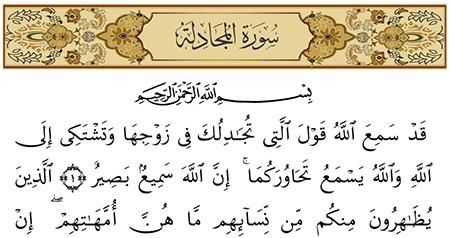 سُورَةُ المُجَادلَة
بِسْمِ اللَّهِ الرَّحْمَٰنِ الرَّحِيمِ
قَدْ سَمِعَ اللَّهُ قَوْلَ الَّتِي تُجَادِلُكَ فِي زَوْجِهَا وَتَشْتَكِي إِلَى
اللَّهِ وَاللَّهُ يَسْمَعُ تَحَاوُرَكُمَا ۚ إِنَّ اللَّهَ سَمِيعٌ بَصِيرٌ ﴿١﴾ الَّذِينَ
يُظَاهِرُونَ مِنكُم مِّن نِّسَائِهِم مَّا هُنَّ أُمَّهَاتِهِمْ ۖ إِنْ